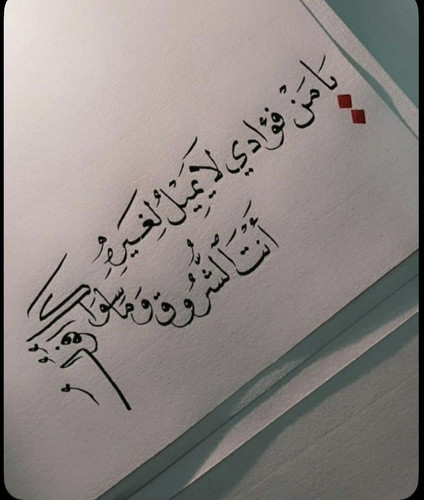 يَا مَنْ فُؤَادِي لَا يَمِيلُ لِغَيْرِهِ
أَنْتَ الشُّرُوقُ وَمَا سِوَاكَ